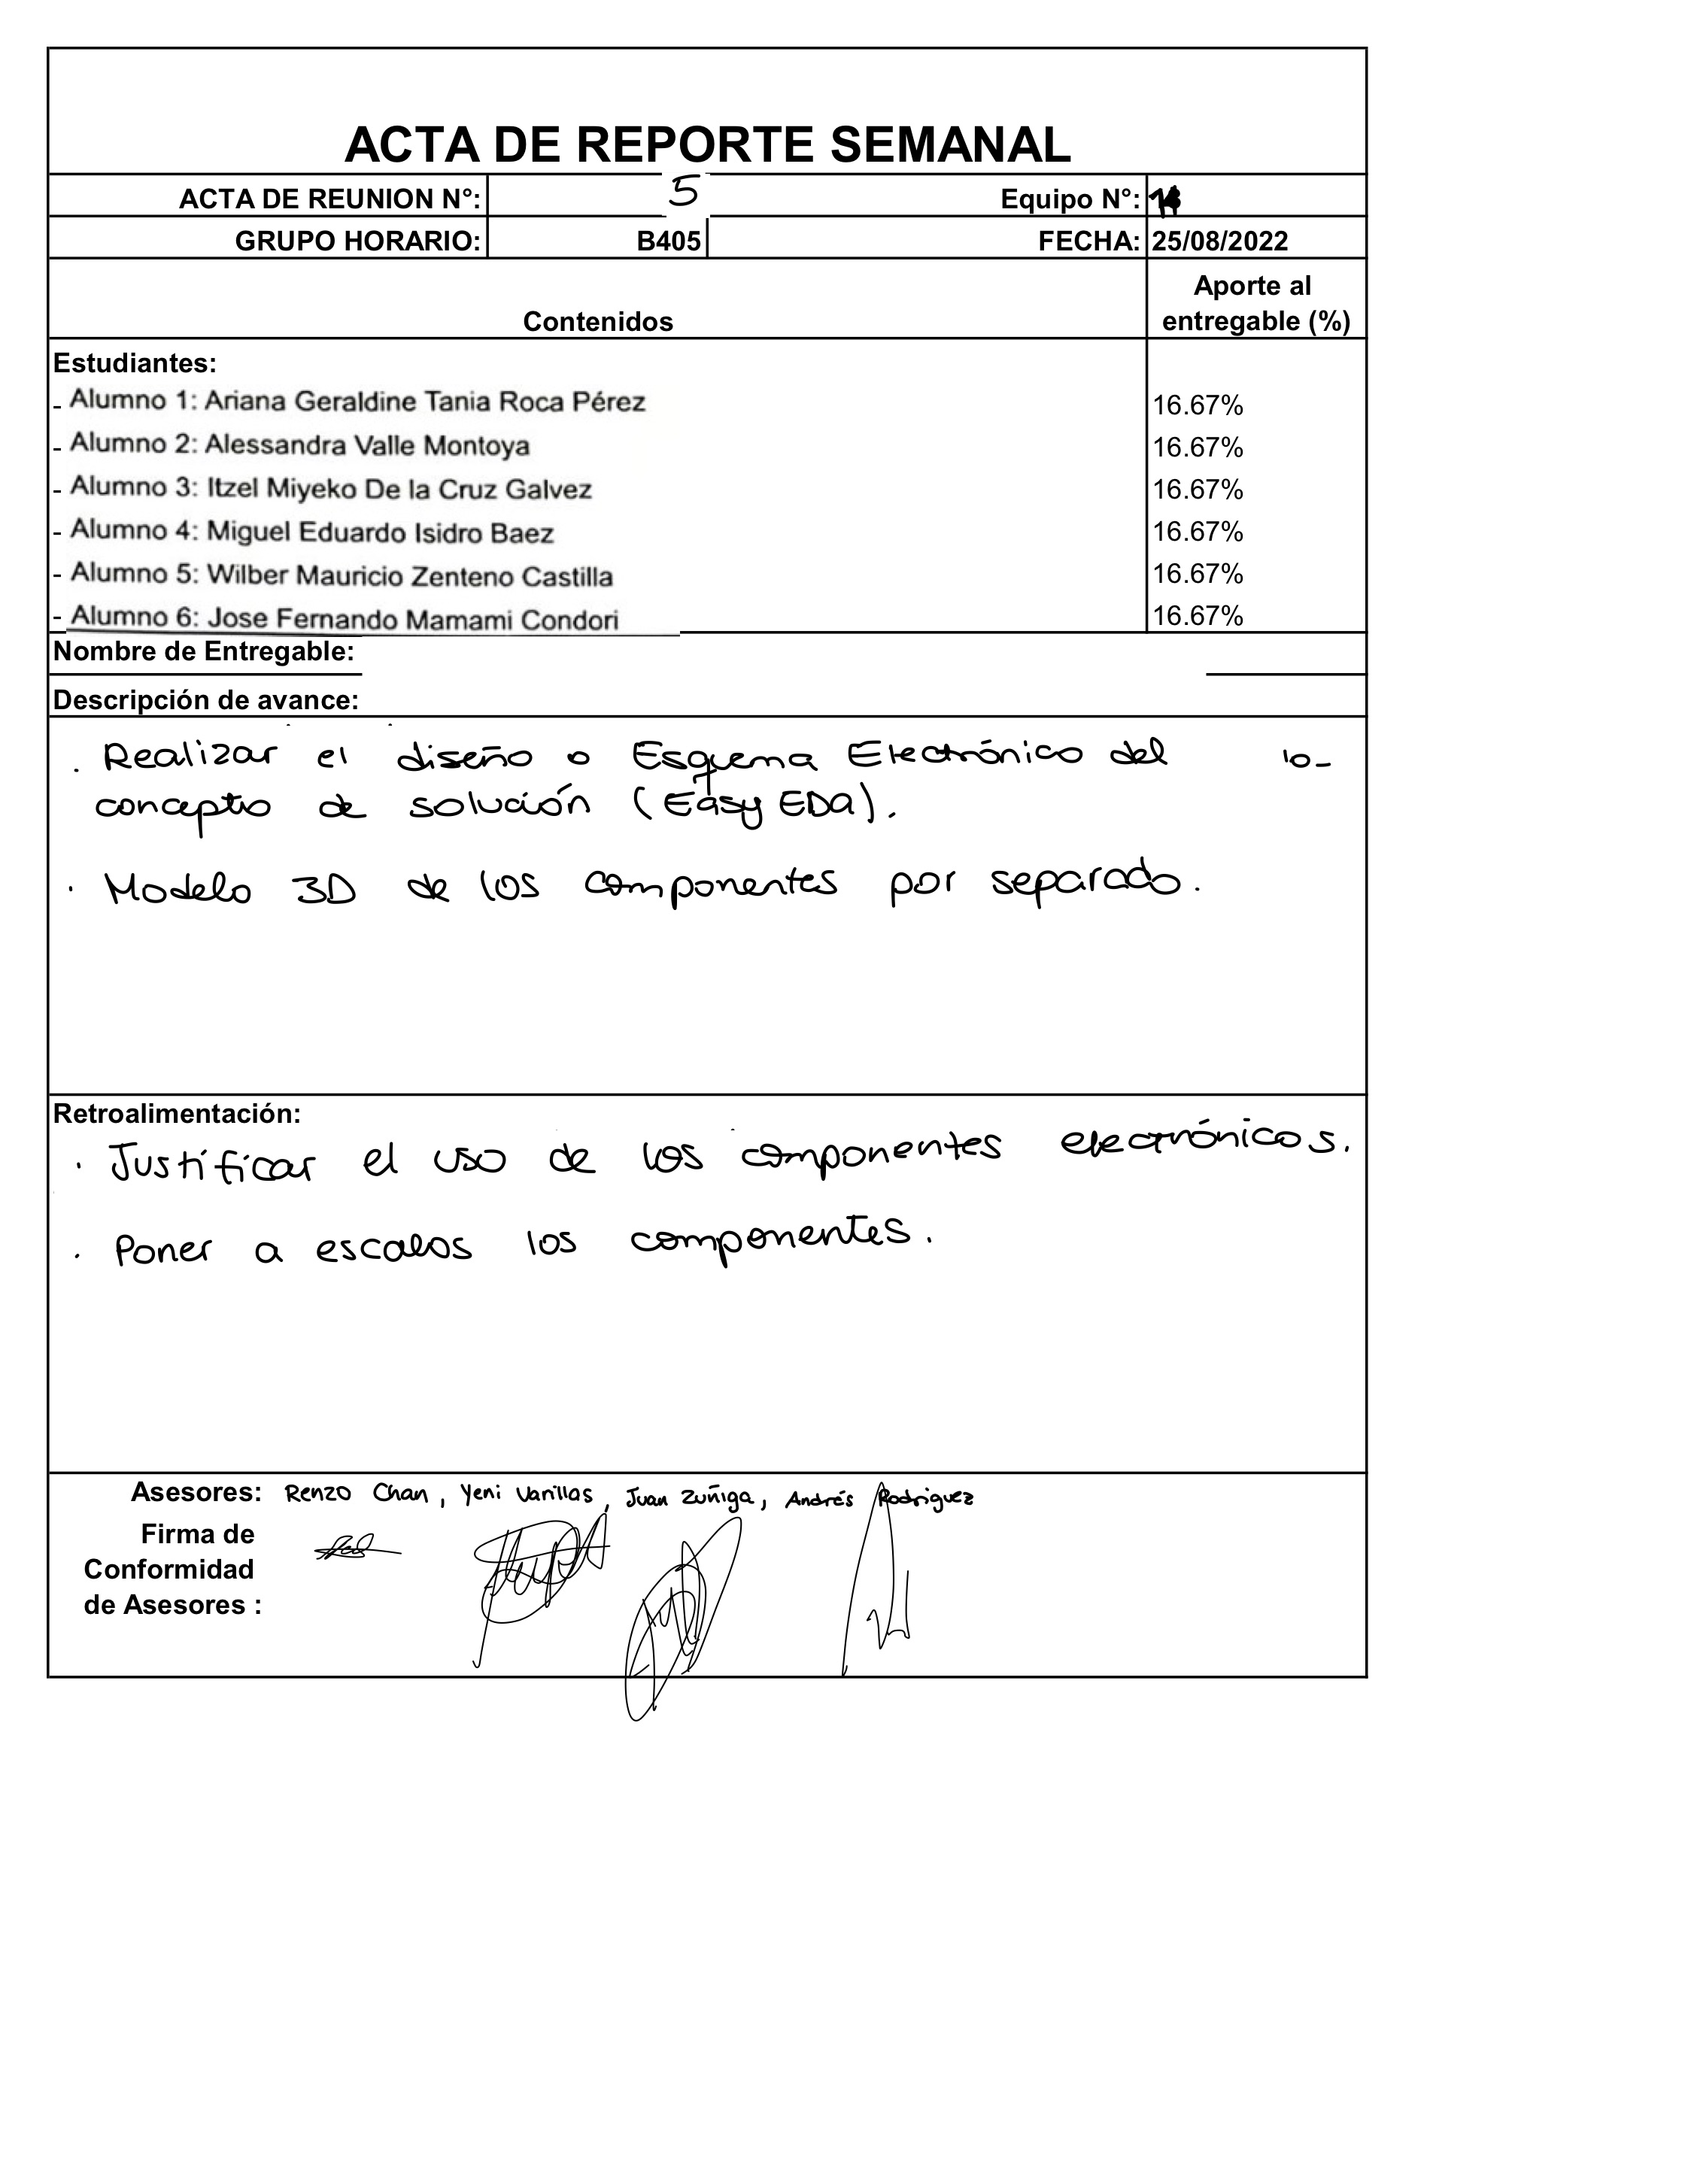 ACTA DE REPORTE SEMANAL
ACTA DE REUNION N°: 5 Equipo N°:
GRUPO HORARIO: B405 FECHA: 25/08/2022
Contenidos Aporte al entregable (%)
Estudiantes:
- Alumno 1: Ariana Geraldine Tania Roca Pérez 16.67%
- Alumno 2: Alessandra Valle Montoya 16.67%
- Alumno 3: Itzel Miyeko De la Cruz Galvez 16.67%
- Alumno 4: Miguel Eduardo Isidro Baez 16.67%
- Alumno 5: Wilber Mauricio Zenteno Castilla 16.67%
- Alumno 6: Jose Fernando Mamami Condori 16.67%
Nombre de Entregable:
Descripción de avance:
. Realizar el diseño o Esquema Electrónico del
concepto de solución (Easy EDA).
. Modelo 3D de los componentes por separado.
Retroalimentación:
. Justificar el uso de los componentes electrónicos.
. Poner a escalas los componentes.
Asesores: Renzo Chan, Yeni Varillas, Juan Zuñiga, Andrés Rodriguez
Firma de
Conformidad
de Asesores :